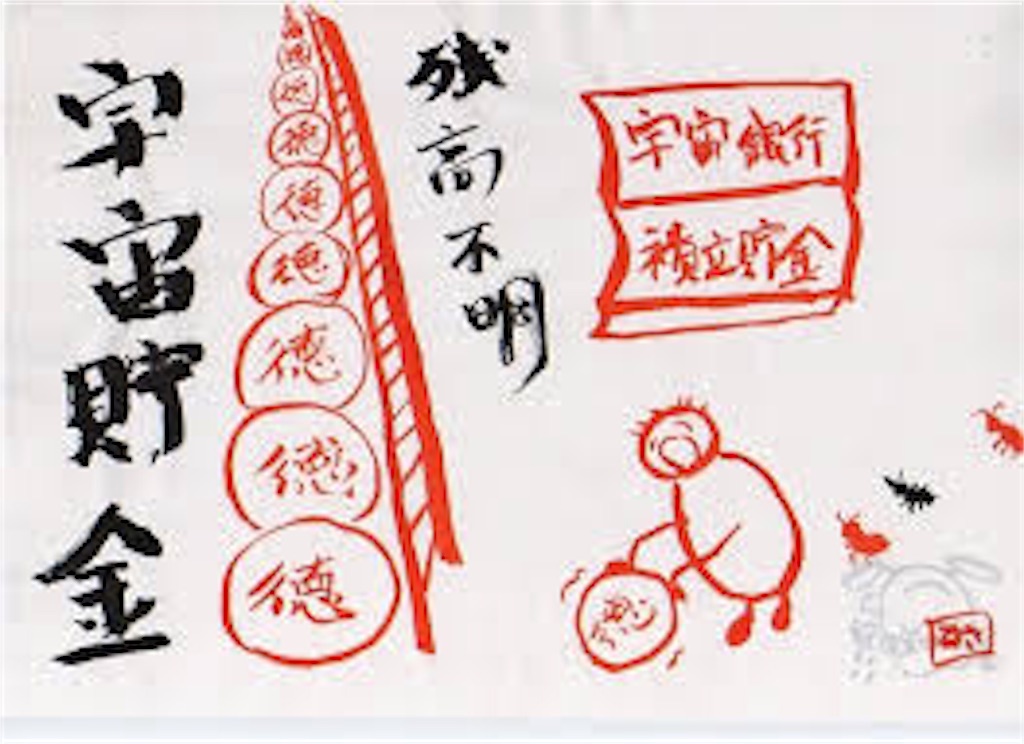 宇宙貯金
徳
徳
徳
徳
徳
徳
残高不明
宇宙銀行
積立貯金